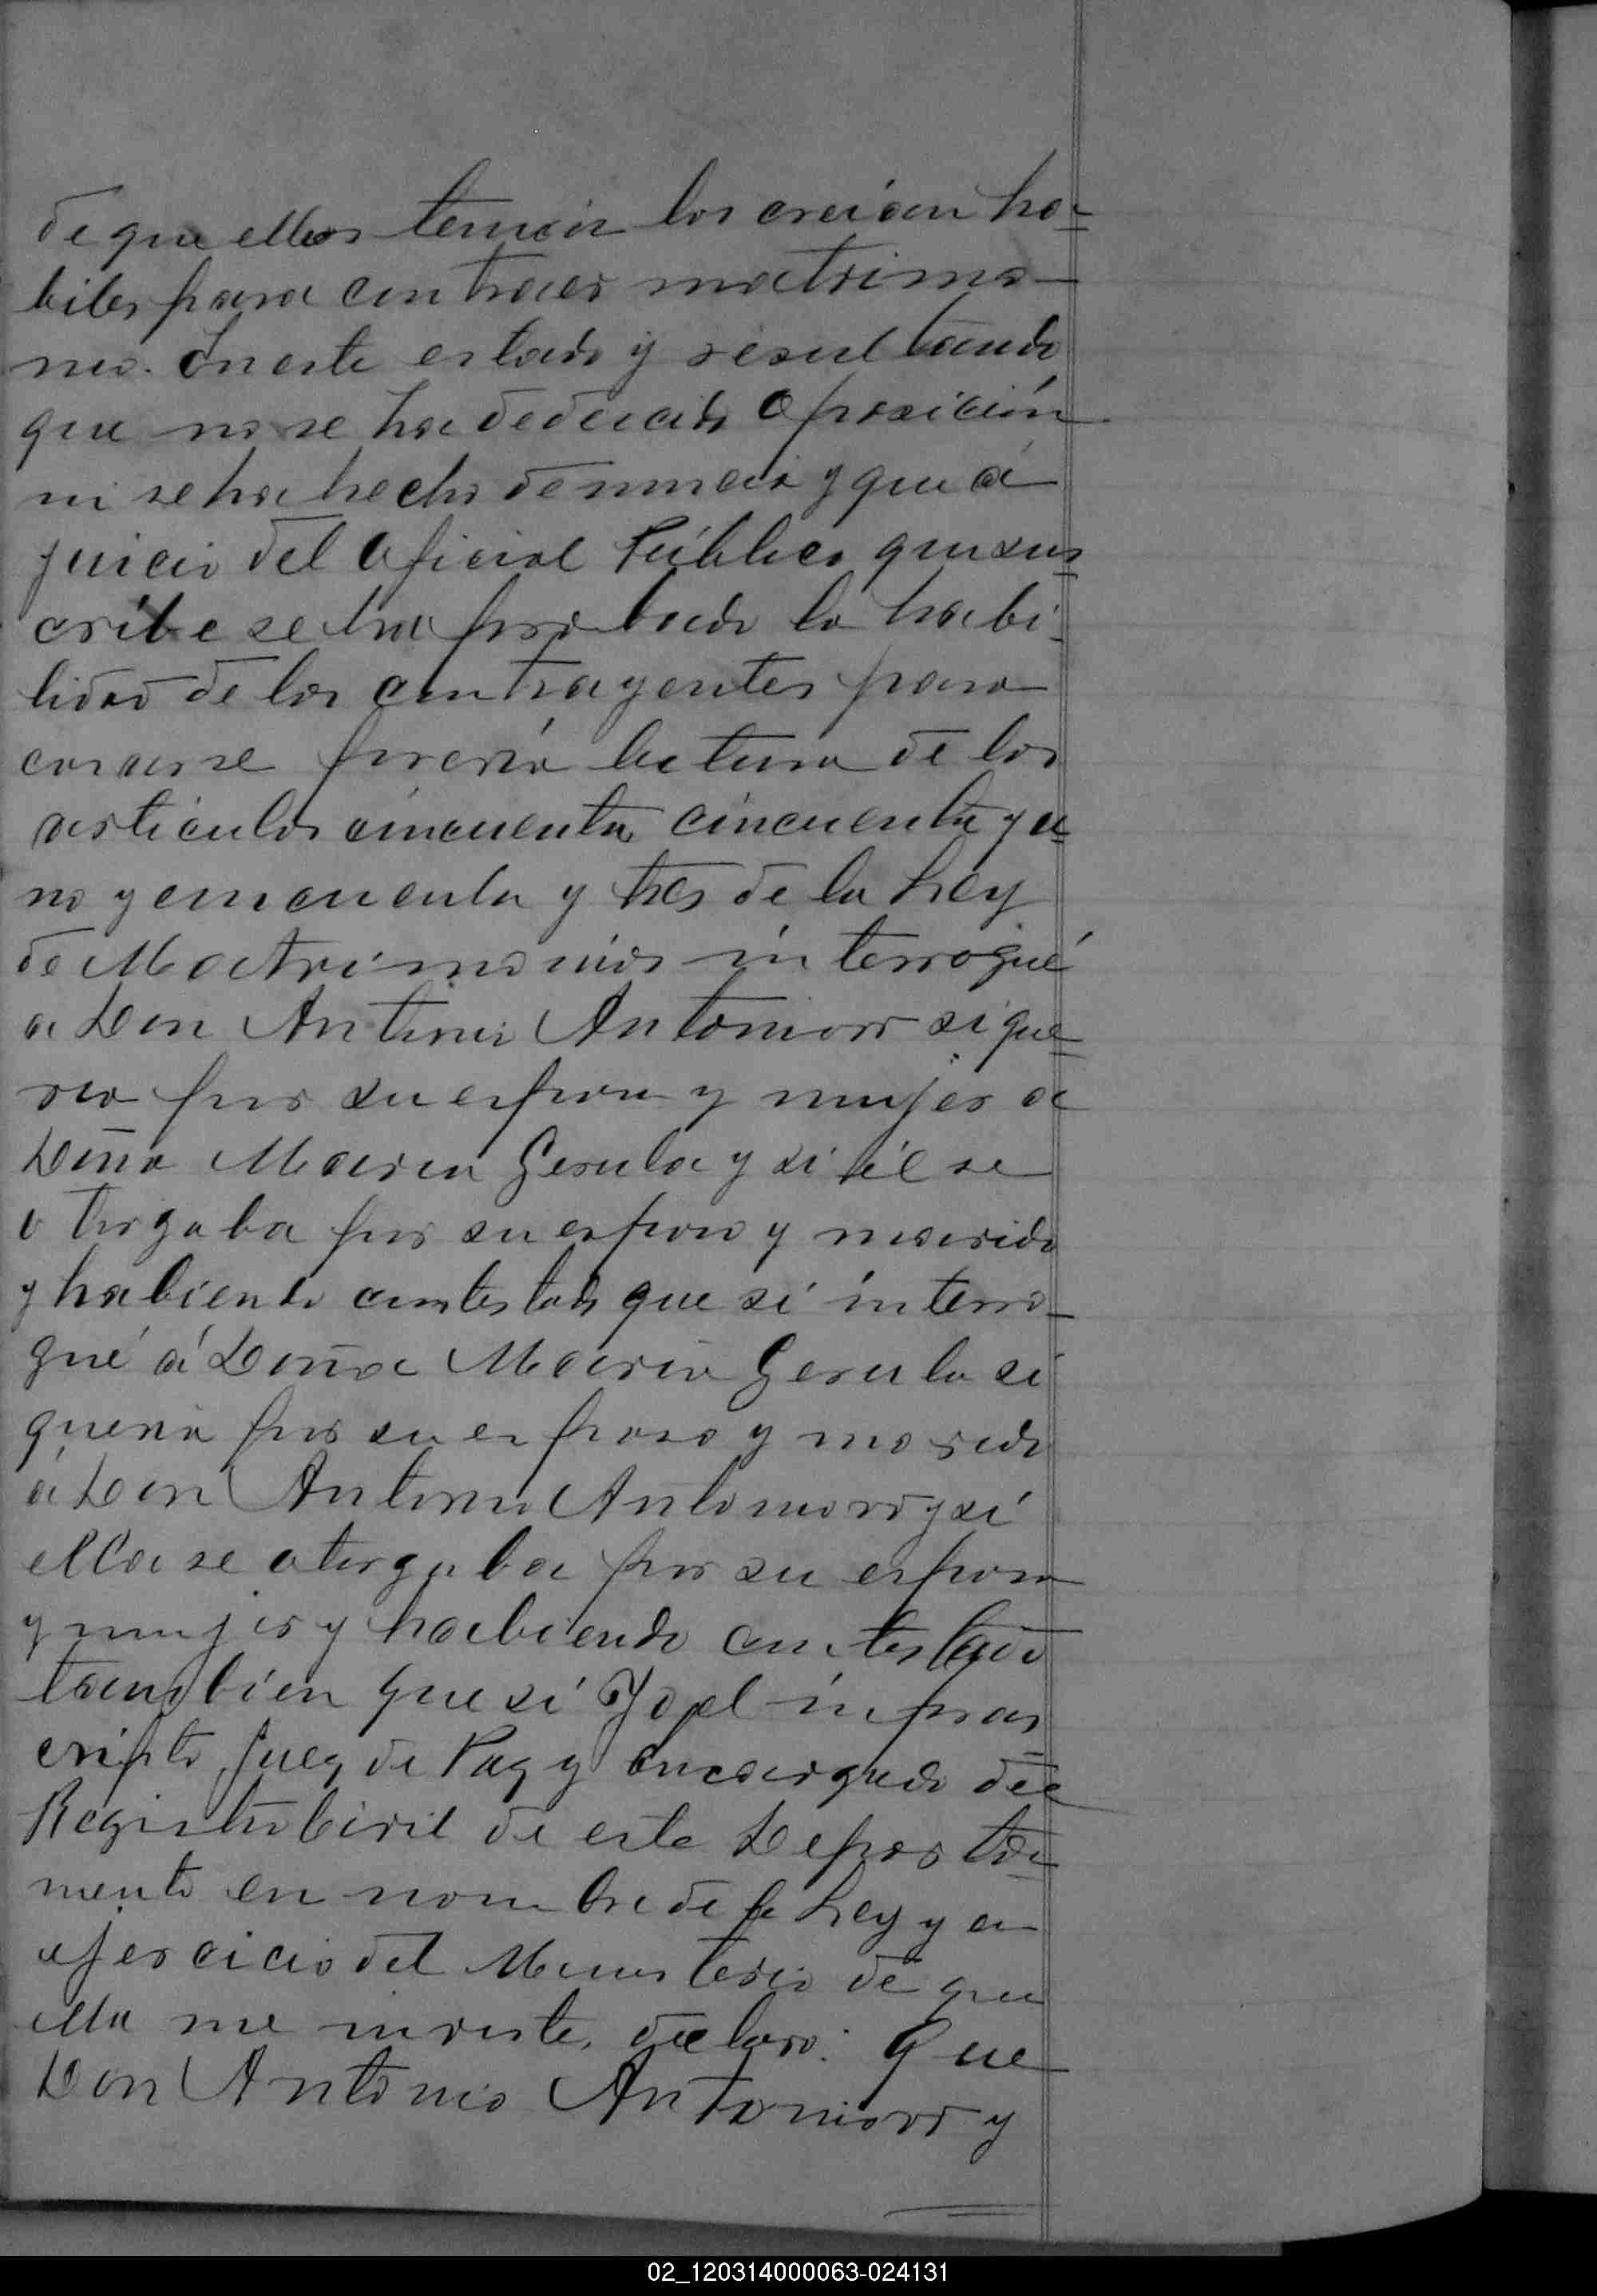 de que ellos tenian los creian há-
biles para contraer matrimo-
nio. En este estado y resultando
que no se ha deducido oposición
ni se ha hecho denuncia y que á
juicio del Oficial Público que sus
cribe se ha probado la habi-
lidad de los contrayentes para
casarse previa lectura de los
articulos cincuenta, cincuenta y u-
no y cincuenta y tres de la Ley
de Matrimonios interrogué
a Don Antonio Antoniow si que-
ria por su esposa y mujer a
Doña Maria Gerula y si él se
otorgaba por su esposo y marido
y habiendo contestado que si interro-
gué á Doña Maria Gerula si
queria por su esposo y marido
á Don Antonio Antoniow y si
ella se otorgaba por su esposa
y mujer y habiendo contestado
tambien que si Yo el infras
cripto Juez de Paz y Encargado del
Registro Civil de este Departa-
mento en nombre de la Ley y en
ejercicio del Ministerio de que
ella me inviste, declaro: Que
Don Antonio Antoniow y
02_120314000063-024131